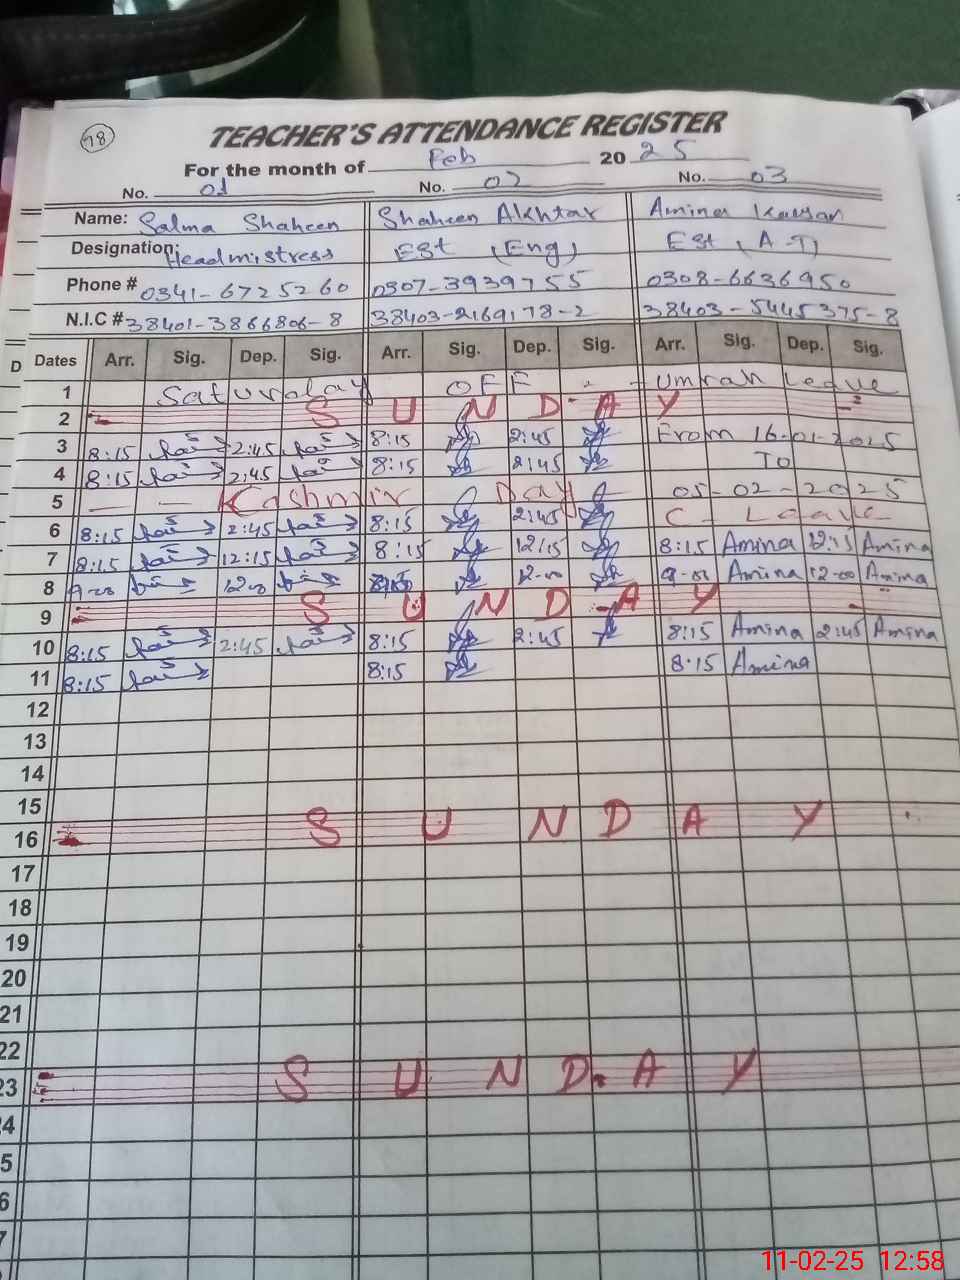 78
TEACHER'S ATTENDANCE REGISTER
For the month of Feb 2025
No. 01 No. 02 No. 03
Name: Salma Shaheen Shaheen Akhtar Amina Kausar
Designation: Headmistress ESt (Eng) ESt (A-T)
Phone # 0341-6725260 0307-3939755 0308-6636950
N.I.C # 38401-3866806-8 38403-2169178-2 38403-5445375-8
D Dates Arr. Sig. Dep. Sig. Arr. Sig. Dep. Sig. Arr. Sig. Dep. Sig.
1 Saturday OFF - - Umrah Leave
2 SUNDAY
3 8:15 2:45 8:15 2:45 From 16-01-2025
4 8:15 2:45 8:15 2:45 To
5 - - Kashmir Day 05-02-2025
6 8:15 2:45 8:15 2:45 C- Leave
7 8:15 12:15 8:15 12:15 8:15 Amina 12:15 Amina
8 9-00 12-00 Amina 12-00 Amina
9 SUNDAY
10 8:15 2:45 8:15 2:45 8:15 Amina 2:45 Amina
11 8:15 8:15 8:15 Amina
12
13
14
15
16 SUNDAY
17
18
19
20
21
22
23 SUNDAY
4
5
6
7
11-02-25 12:58